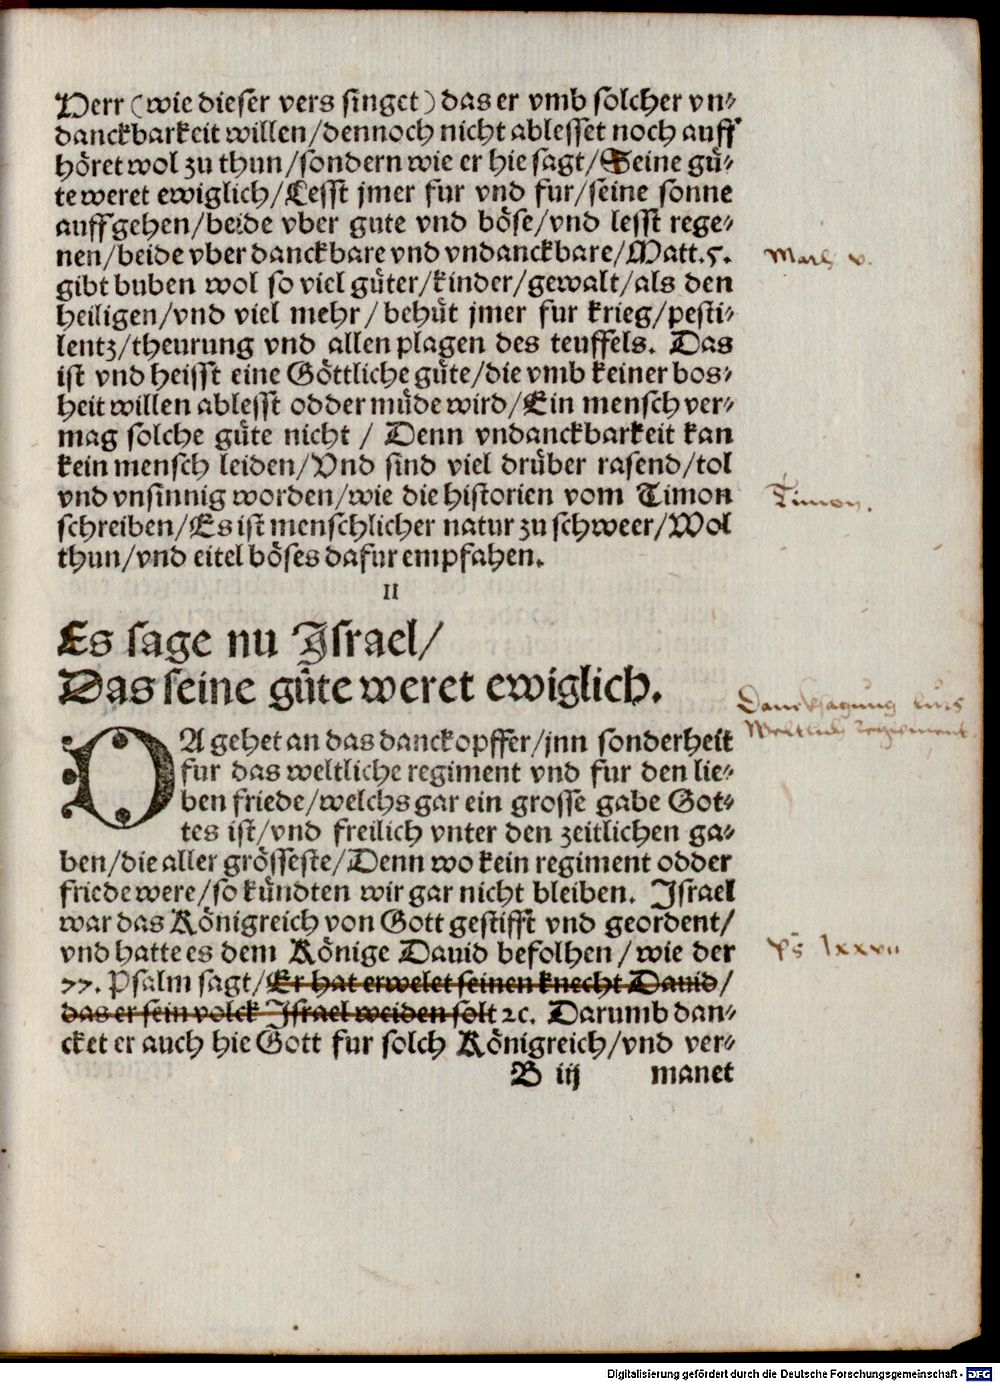 Herr (wie dieser vers singet) das er vmb solcher vn⸗
danckbarkeit willen/dennoch nicht ablesset noch auff
höret wol zu thun/sondern wie er hie sagt/Seine gü⸗
te weret ewiglich/Lesst jmer fur vnd fur/seine sonne
auffgehen/beide vber gute vnd böse/vnd lesst rege⸗
nen/beide vber danckbare vnd vndanckbare/Matt.5.
gibt buben wol so viel güter/kinder/gewalt/als den
heiligen/vnd viel mehr/behüt jmer fur krieg/pesti⸗
lentz/theurung vnd allen plagen des teuffels. Das
ist vnd heisst eine Göttliche güte/die vmb keiner bos⸗
heit willen ablesst odder müde wird/Ein mensch ver⸗
mag solche güte nicht / Denn vndanckbarkeit kan
kein mensch leiden/Vnd sind viel drüber rasend/tol
vnd vnsinnig worden/wie die historien vom Timon
schreiben/Es ist menschlicher natur zu schweer/Wol
thun/vnd eitel böses dafur empfahen.
II
Es sage nu Israel/
Das seine güte weret ewiglich.
DA gehet an das danckopffer/jnn sonderheit
fur das weltliche regiment vnd fur den lie⸗
ben friede/welchs gar ein grosse gabe Got⸗
tes ist/vnd freilich vnter den zeitlichen ga⸗
ben/die aller grösseste/Denn wo kein regiment odder
friede were/so kündten wir gar nicht bleiben. Israel
war das Königreich von Gott gestifft vnd geordent/
vnd hatte es dem Könige Dauid befolhen/wie der
77. Psalm sagt/Er hat erwelet seinen knecht Dauid/
das er sein volck Israel weiden solt ꝛc. Darumb dan⸗
cket er auch hie Gott fur solch Königreich/vnd ver⸗
B iij manet
v.
Timon.
Dancksagung
Weltlich regiment.
Ps lxxvii
Digitalisierung gefördert durch die Deutsche Forschungsgemeinschaft - DFG